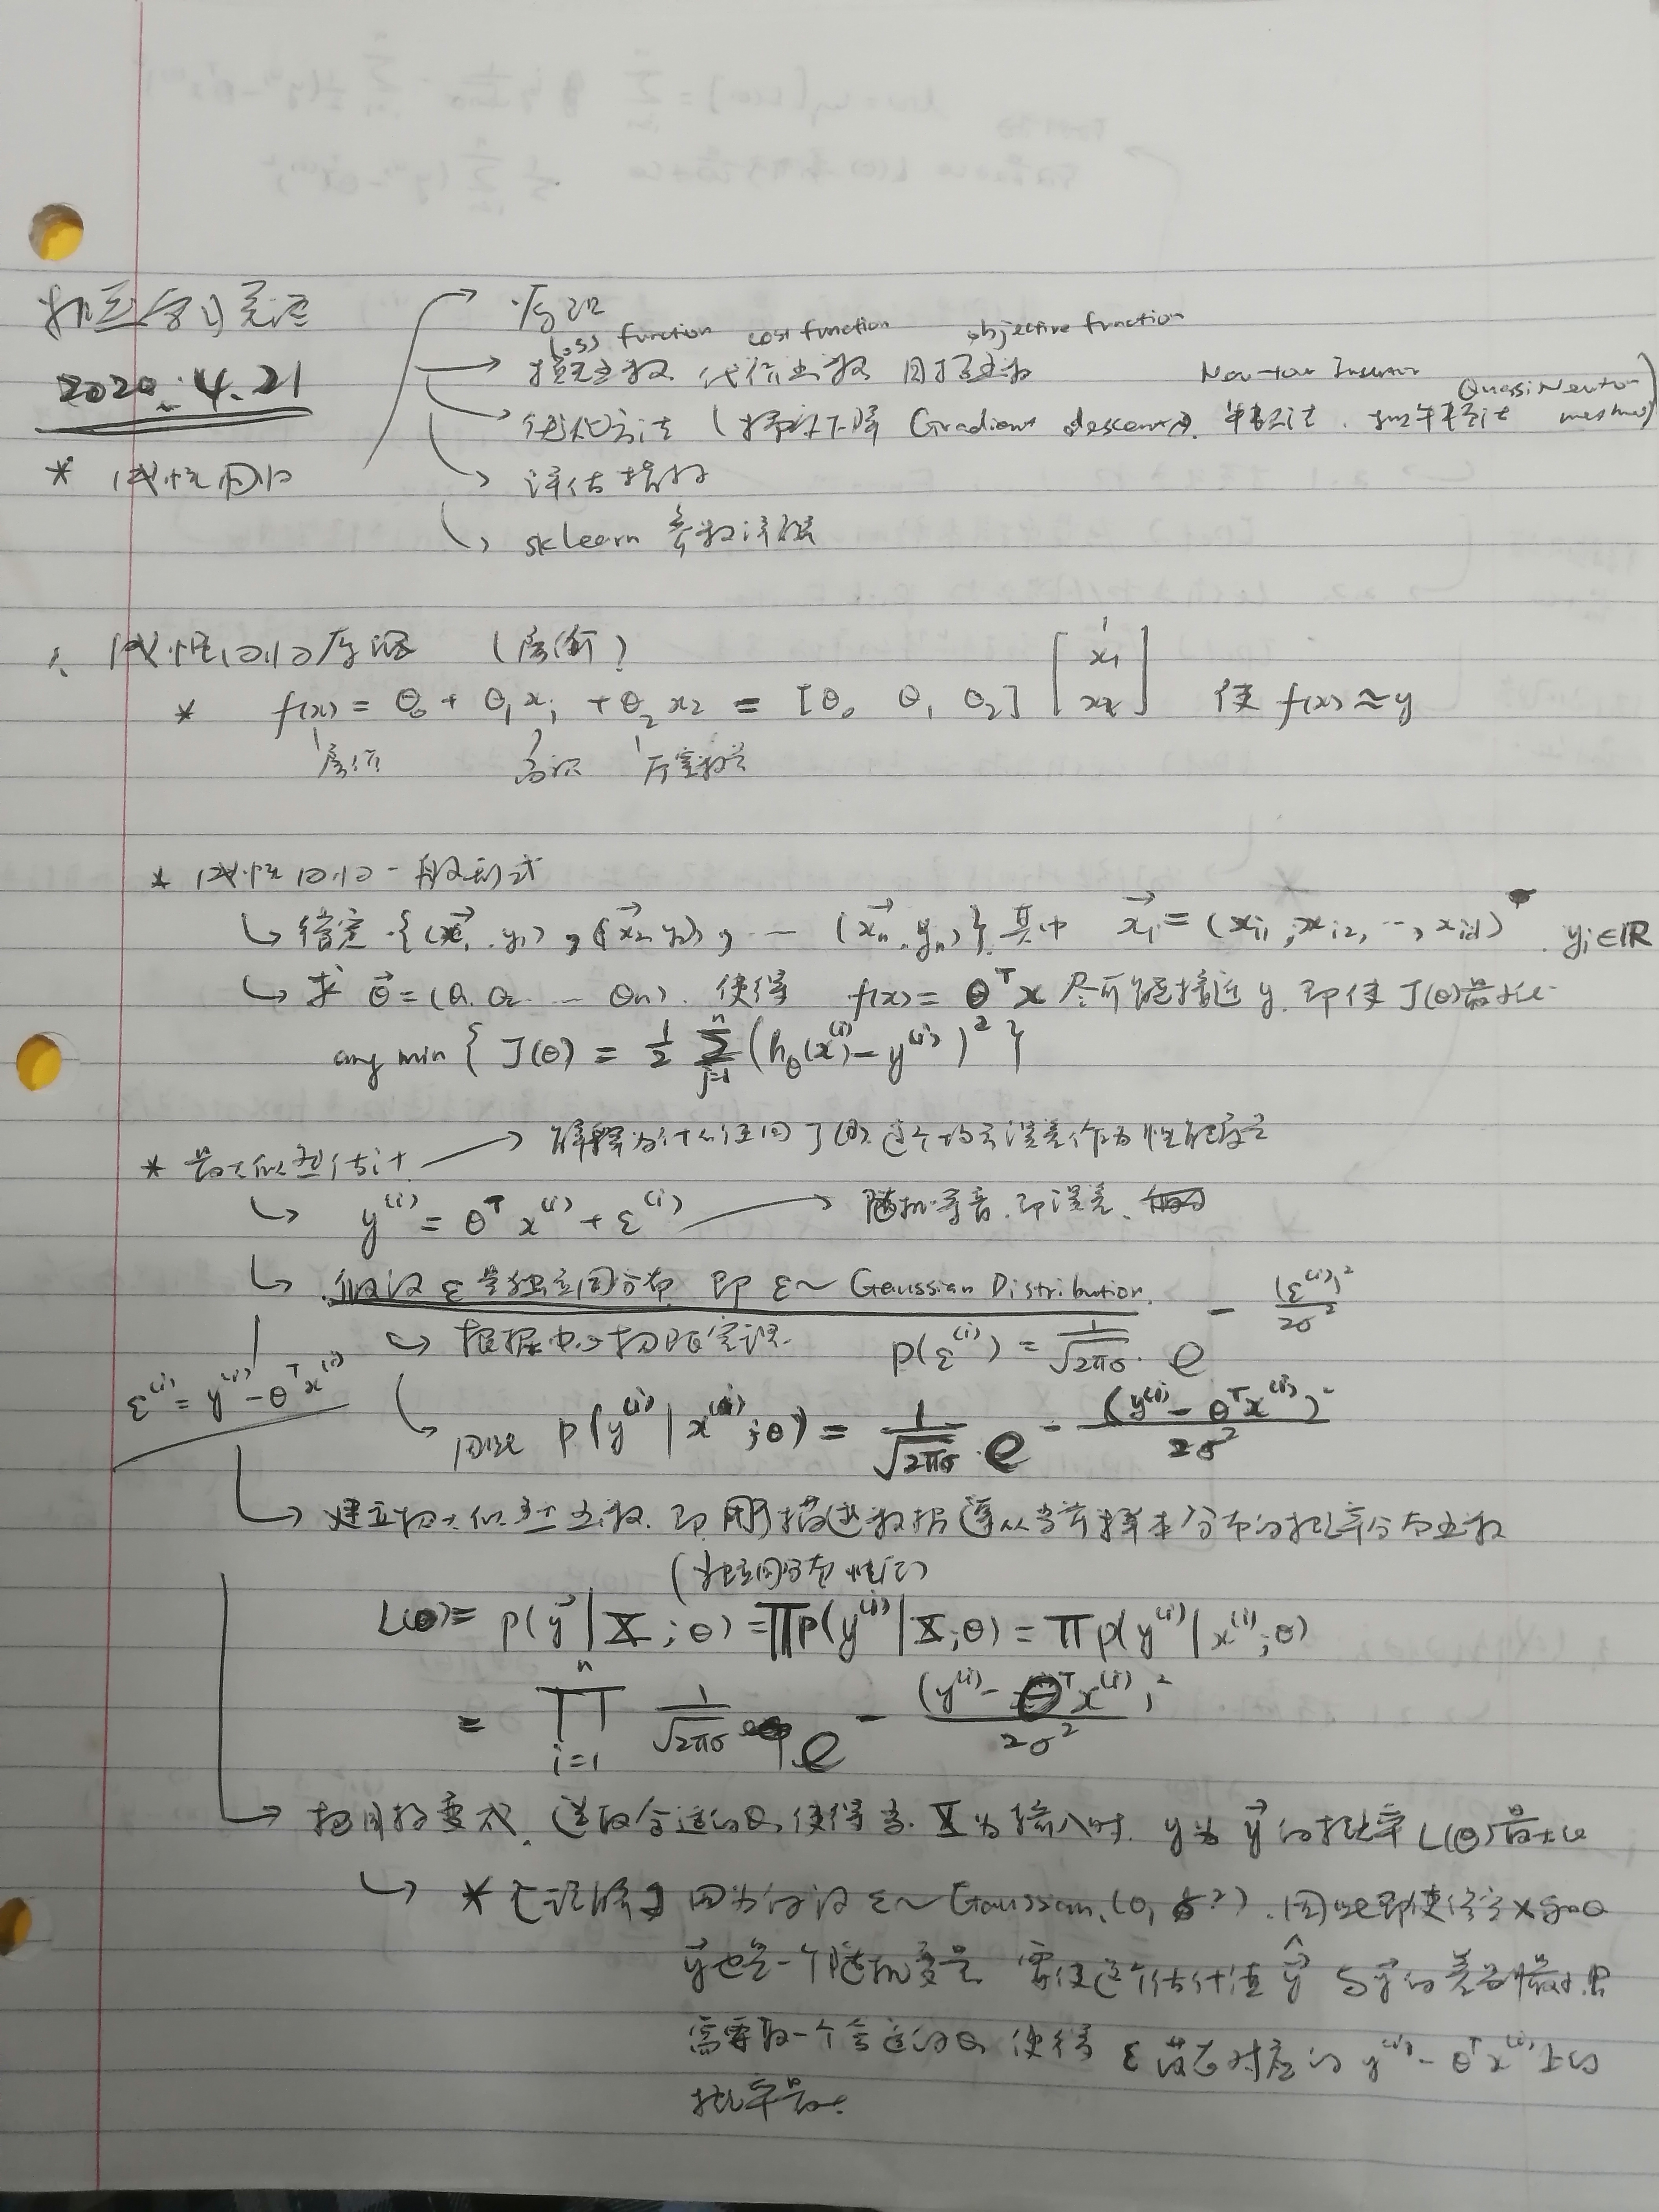 机器学习算法
2020.4.21
* 线性回归
原理
loss function cost function objective function
损失函数 代价函数 目标函数
Quasi Newton
优化方法 (梯度下降 Gradient descent, 牛顿法, 拟牛顿法
评估指标
sklearn 参数详解
1. 线性回归原理 (房价)
* f(x) = θ₀ + θ₁x₁ + θ₂x₂ = [θ₀ θ₁ θ₂] [1 x₁ x₂] 使 f(x) ≈ y
房价 面积 房间数
* 线性回归一般形式
给定 {(x⃗₁, y₁), (x⃗₂, y₂), … (x⃗ₙ, yₙ)} 其中 x⃗ᵢ = (xᵢ₁, xᵢ₂, …, xᵢd), yᵢ∈ℝ
求 θ⃗ = (θ₁ θ₂ … θₙ), 使得 f(x) = θᵀx 尽可能接近 y, 即使 J(θ) 最小化
arg min { J(θ) = ½ Σⁿⱼ₌₁ (h_θ(x⁽ⁱ⁾) − y⁽ⁱ⁾)² }
* 最大似然估计 → 解释为什么使用 J(θ) 这个均方误差作为性能度量
y⁽ⁱ⁾ = θᵀx⁽ⁱ⁾ + ε⁽ⁱ⁾ → 随机噪音, 即误差,
假设 ε 是独立同分布 即 ε ~ Gaussian Distribution.
根据中心极限定理. p(ε⁽ⁱ⁾) = 1/√2πσ · e^−(ε⁽ⁱ⁾)²/2σ²
ε⁽ⁱ⁾ = y⁽ⁱ⁾ − θᵀx⁽ⁱ⁾
因此 p(y⁽ⁱ⁾ | x⁽ⁱ⁾; θ) = 1/√2πσ · e^−(y⁽ⁱ⁾ − θᵀx⁽ⁱ⁾)²/2σ²
建立极大似然函数, 即用描述数据遵从当前样本分布的概率分布函数
(独立同分布性质)
L(θ) = p(y⃗ | X; θ) = ∏p(y⁽ⁱ⁾ | X; θ) = ∏p(y⁽ⁱ⁾ | x⁽ⁱ⁾; θ)
= ∏ⁿᵢ₌₁ 1/√2πσ e^−(y⁽ⁱ⁾ − θᵀx⁽ⁱ⁾)²/2σ²
选取合适的θ, 使得当 X 为输入时, y 为 y⃗ 的概率 L(θ) 最大化
* [理解] 因为假设 ε ~ Gaussian(0, σ²), 因此即使给定 x 和 θ
y⃗ 也是一个随机变量 需使这个估计值 ŷ 与 y⃗ 的差别最小, 只
需要取一个合适的 θ, 使得 ε 落在对应的 y⁽ⁱ⁾ − θᵀx⁽ⁱ⁾ 上的
概率最大